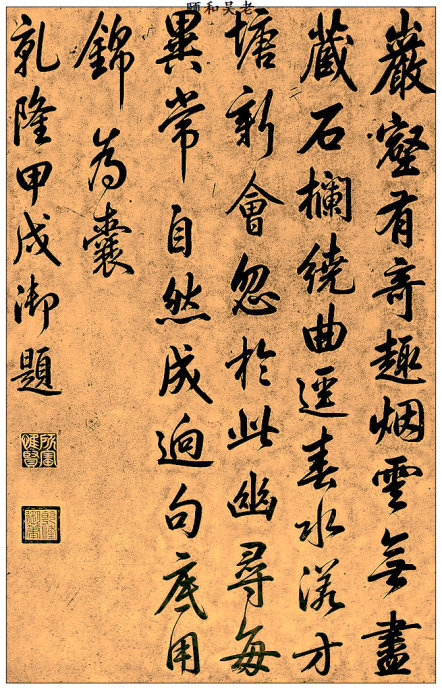 颐和吴老
巖壑有奇趣烟雲無盡
藏石欄繞曲逕春水漾方
塘新會忽於此幽尋每
異常自然成迥句底用
錦為囊
乾隆甲戌御題
所寶惟賢